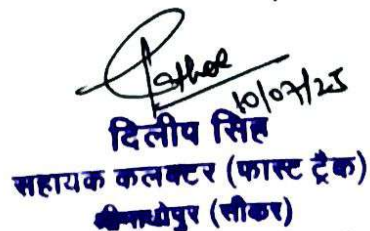 10/07/25
दिलीप सिंह
सहायक कलक्टर (फास्ट ट्रैक)
श्रीमाधोपुर (सीकर)